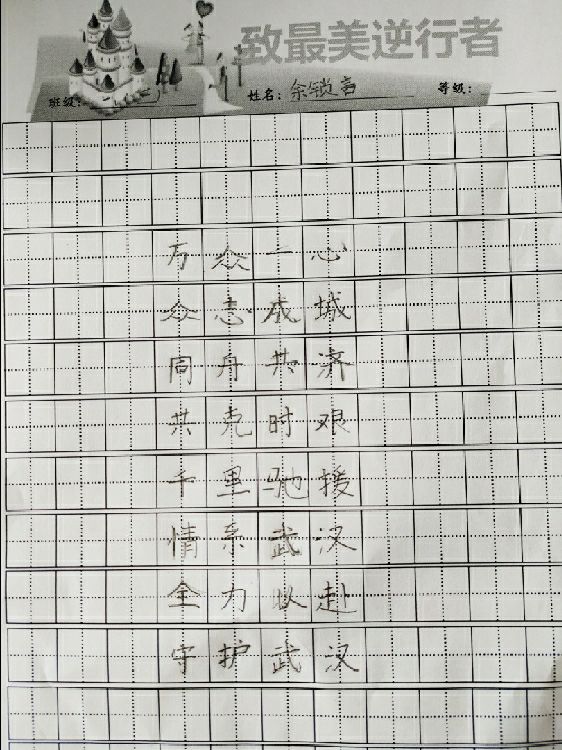 致最美逆行者
班级: 姓名: 余锁喜 等级:
万众一心
众志成城
同舟共济
共克时艰
千里驰援
情系武汉
全力以赴
守护武汉